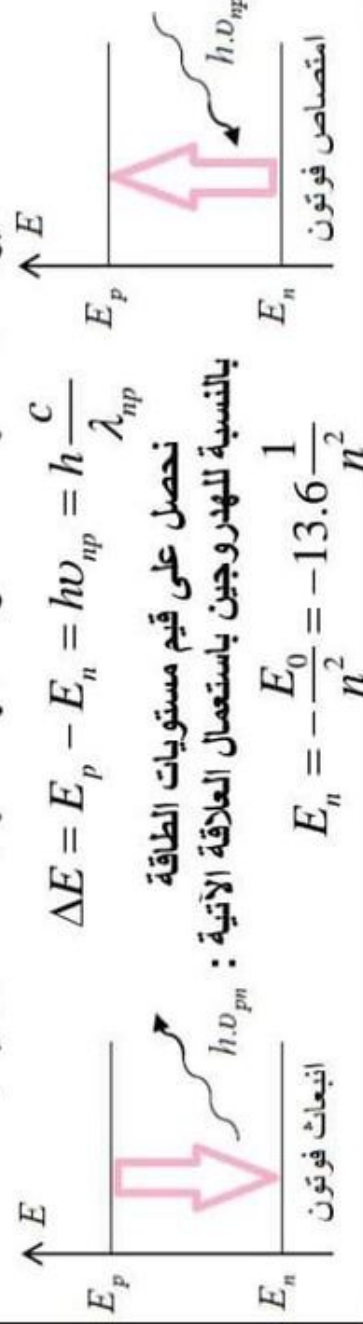 E
E_p
E_n
h.υ_pn
انبعاث فوتون
ΔE = E_p − E_n = hυ_np = h c/λ_np
نحصل على قيم مستويات الطاقة
بالنسبة للهدروجين باستعمال العلاقة الآتية :
E_n = −E_0/n² = −13.6 1/n²
E
E_p
E_n
h.υ_np
امتصاص فوتون